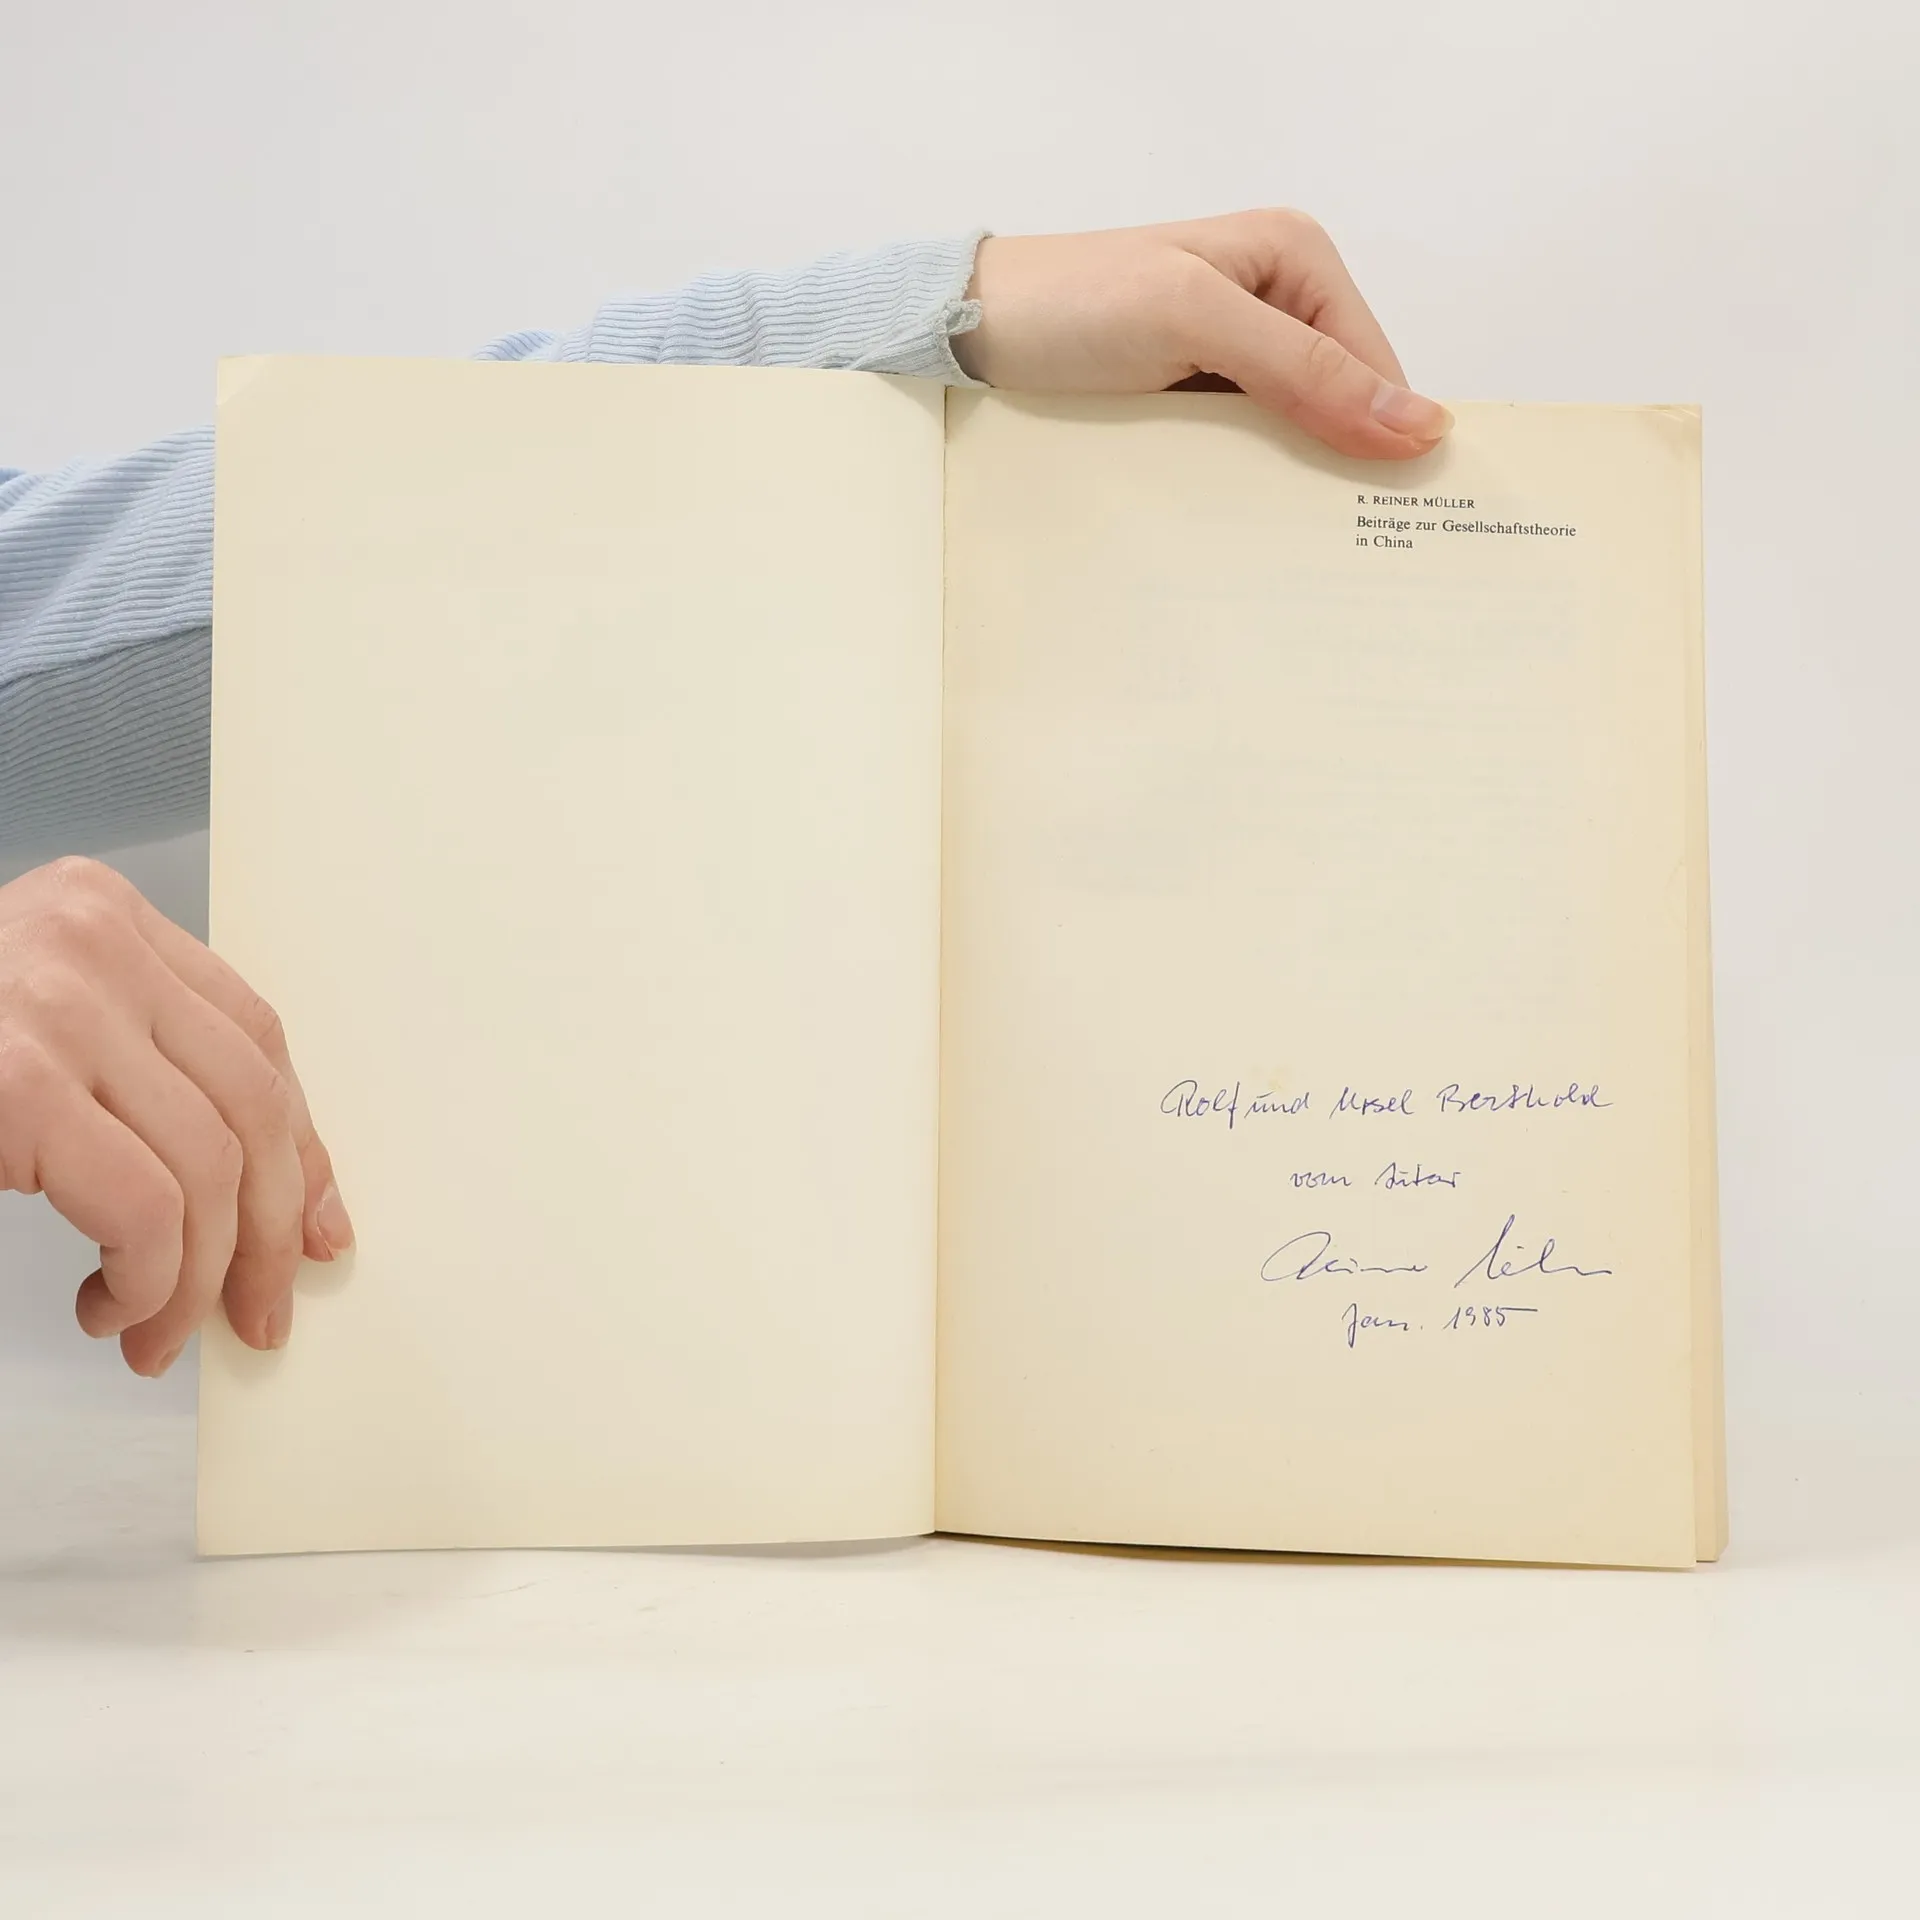 R. REINER MÜLLER
Beiträge zur Gesellschaftstheorie
in China
Rolf und Ursel Berthold
vom Autor
Reiner Müller
Jan. 1985